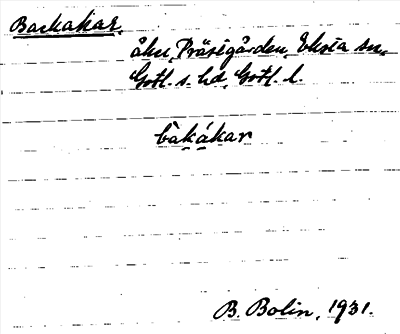 Backåkar,
åker, Prästgården, Eksta sn,
Gotl. s. hd, Gotl. l.
bàkákar
B. Bolin, 1931.